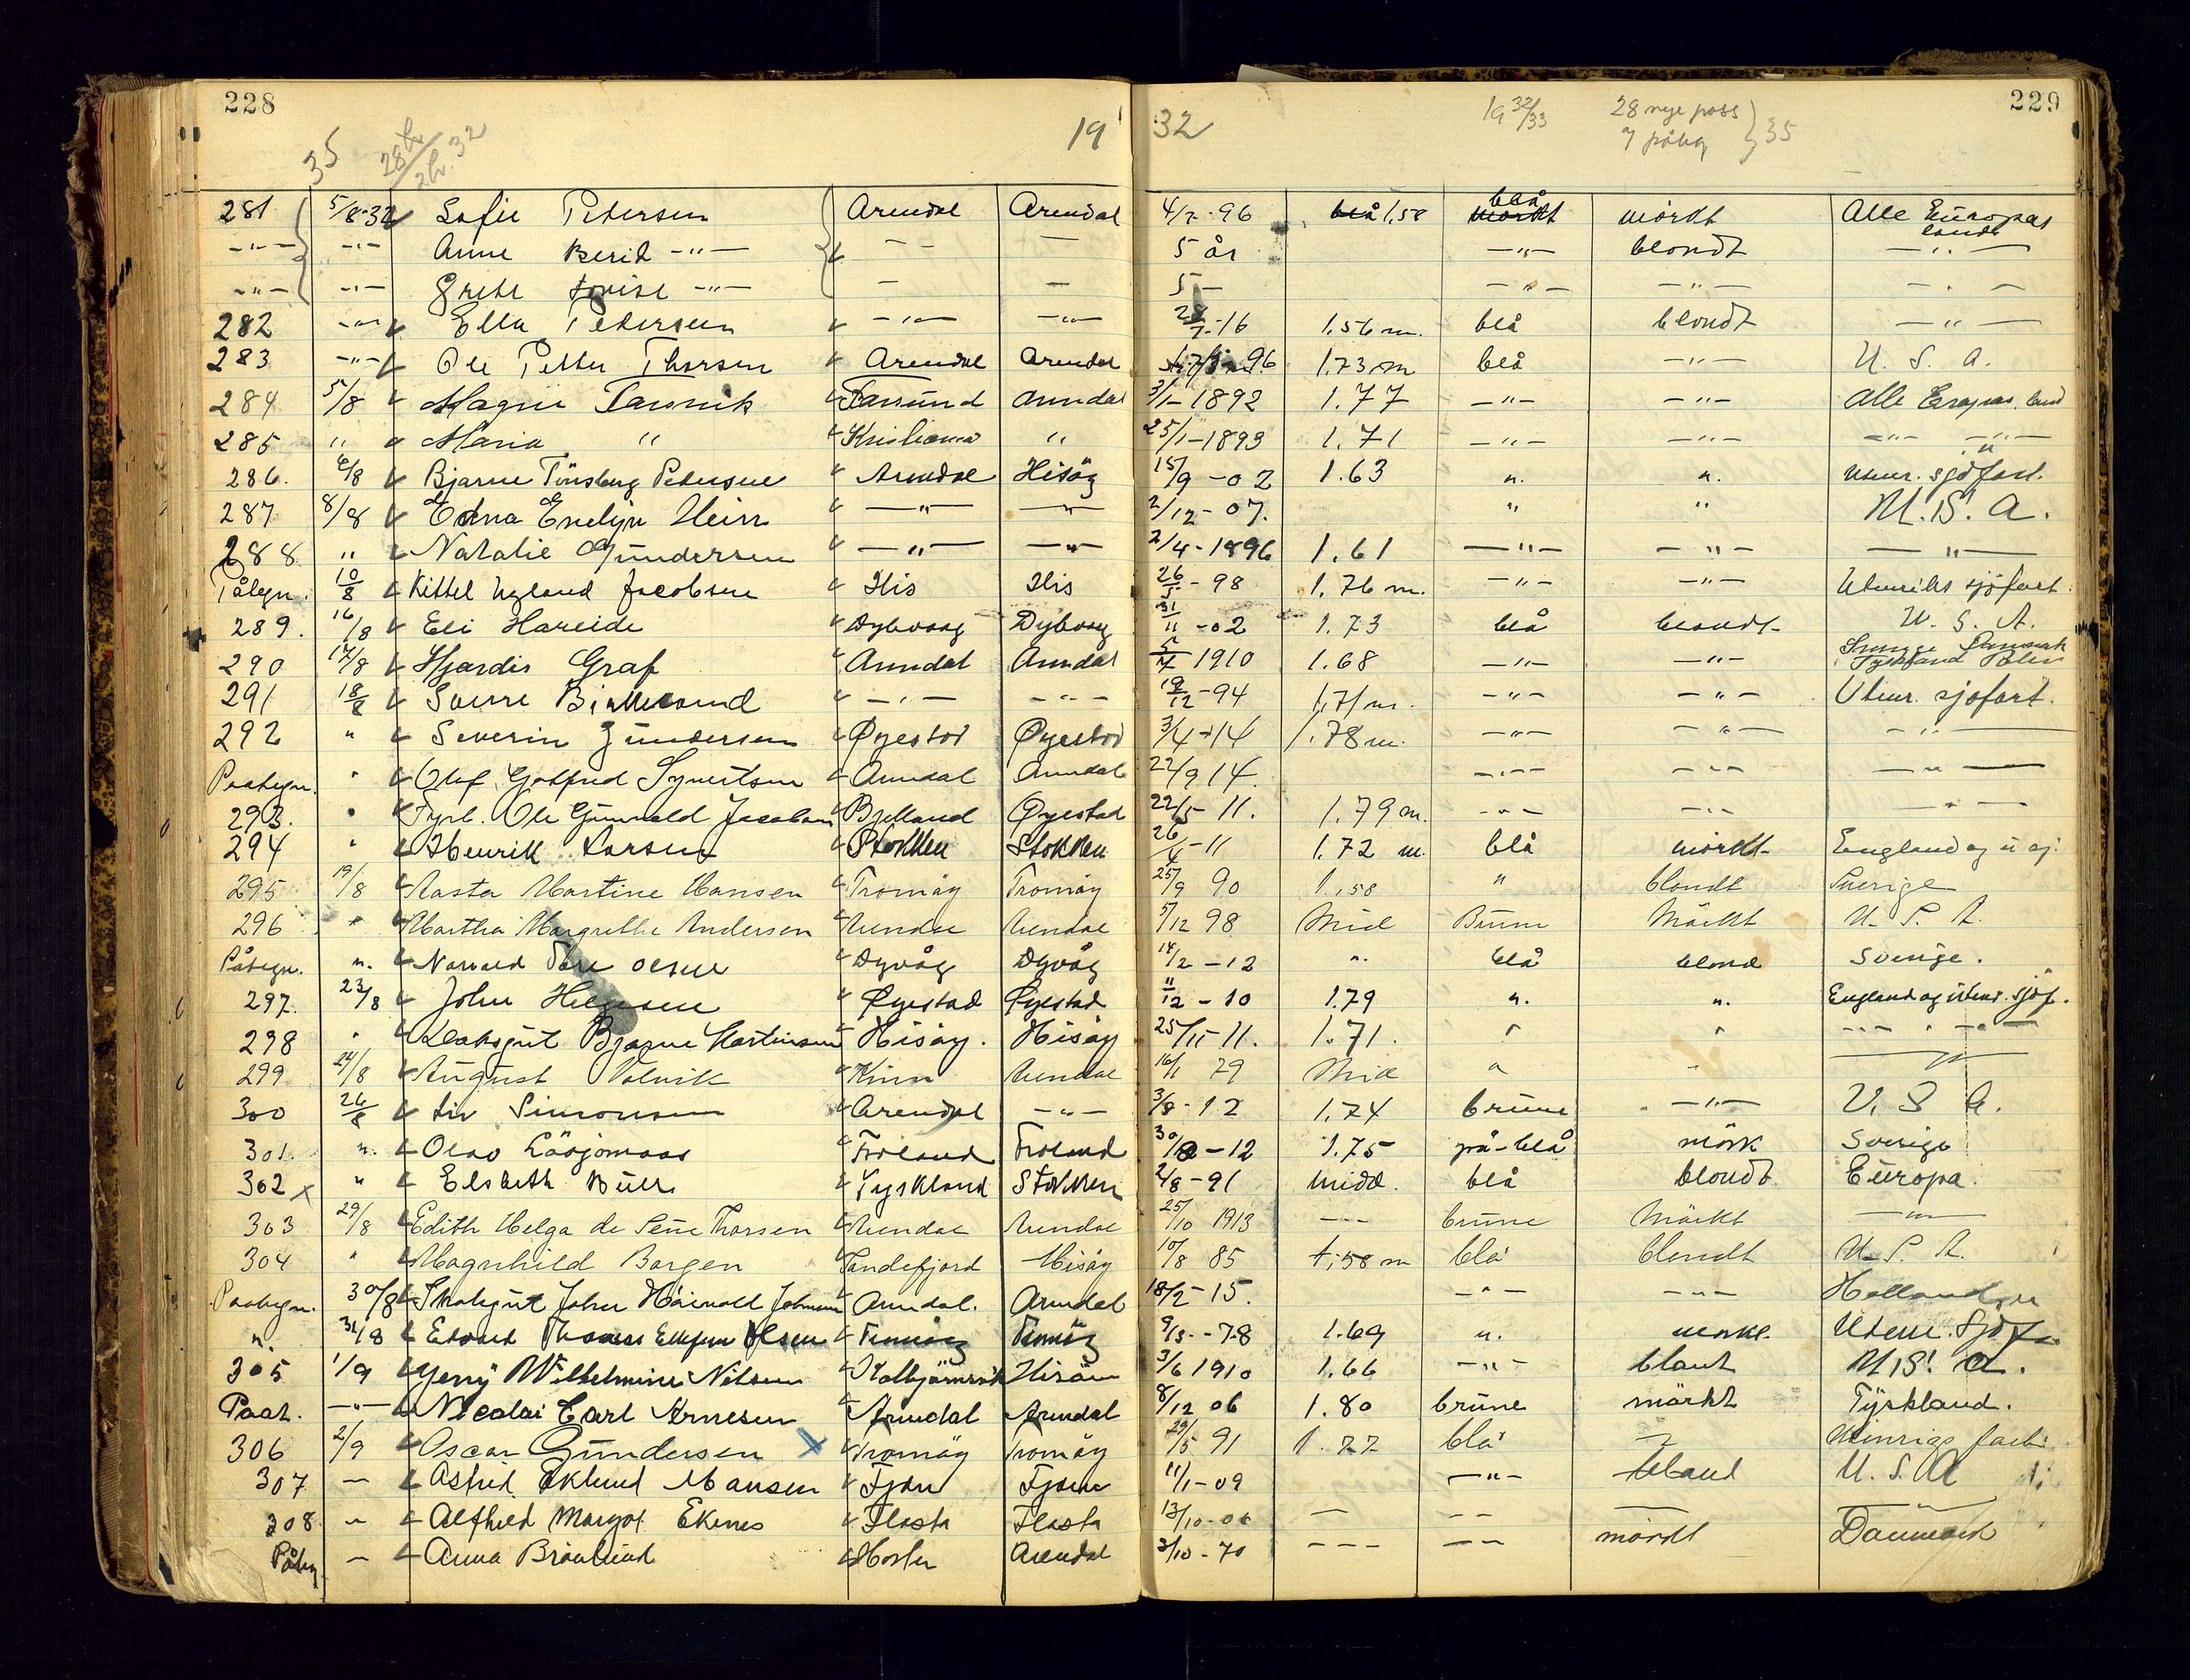 228
229
35
28
32
19 32
19 32/33
28 nye pass
7 påteg } 35
281 5/8-32 Sofie Petersen Arendal Arendal 4/7-96 1,58 blå mörkt Alle Europas land
-"- -"- Anne Berit -"- - - - 5 år -"- blondt -"-
-"- -"- Grete Lovise -"- - - 5 - -"- -"- -"-
282 -"- Ella Petersen -"- -"- 28/7-16 1.56 m. blå blondt -"-
283 -"- Ole Petter Thorsen Arendal Arendal 96 1.73 m blå -"- U.S.A.
284 5/8 Magne Farsund Arendal 3/1-1892 1.77 -"- -"- Alle Europas land
285 " Maria " Kristiania " 25/1-1893 1.71 -"- -"- -"- -"-
286. 6/8 Bjarne Tönsberg Petersen Arendal Hisöy 15/9-02 1.63 ". ". utenr. sjöfart.
287 8/8 Edna Evelyn Heier -"- -"- 2/12-07. " " U.S.A.
288 " Natalie Gundersen -"- -"- 2/4-1896 1.61 -"- -"- -"-
Påtegn. 10/8 Kittel Nyland Jacobsen His His 26/5-98 1.76 m. -"- -"- Utenriks sjöfart.
289. 16/8 Eli Hareide Dybvaag Dybvaag 31/11-02 1.73 blå blondt U.S.A.
290 17/8 Hjørdis Graf Arendal Arendal 5/4 1910 1.68 -"- -"- Sverige Danmark Tyskland Polen
291 18/8 Sverre -"- -"- 19/12-94 1,71 m. -"- -"- Utenr. sjøfart.
292 " Severin Gundersen Øyestad Øyestad 3/4-14 1.78 m. -"- -"- -"-
Paategn. " Olof Gotfred Syvertsen Arendal Arendal 22/9 14. -"- -"- -"-
293. " Fyrb. Ole Gunvald Jacobsen Bjelland Øyestad 22/5-11. 1.79 m. -"- -"- -"-
294 " Henrik Larsen Stokken Stokken 26/4-11 1.72 m. blå mörkt England og u sj.
295 19/8 Aasta Martine Hansen Tromöy Tromöy 25/9 90 1.,58 " blondt Sverige
296 " Martha Margrethe Andersen Arendal Arendal 5/12 98 Mid Brun Mörkt U.S.A.
Påtegn. ". Norvald Tore Olsen Dyvåg Dyvåg 14/2-12 ". blå blond Sverige.
297. 23/8 John Helgesen Øyestad Øyestad 11/12-10 1.79 ". ". England og utenr. sjöf.
298 " Dæksgut Bjarne Martinsen Hisöy. Hisöy 25/11-11. 1.71. " " -"- " -"-
299 24/8 August Kinn Arendal 16/1 79 Mid " - "
300 26/8 Liv Simonsen Arendal -"- 3/8-12 1.74 brune -"- U.S.A.
301. ". Olav Froland Froland 30/ -12 1.75 grå-blå mörk Sverige
302 x " Elsbeth Tyskland Stokken 2/8-91 midd. blå blondt Europa.
303 29/8 Edith Helga de Thorsen Arendal Arendal 25/10 1913 --- brune Mörkt -"-
304 " Magnhild Borgen Sandefjord Hisöy 10/8 85 1,58 m blå blondt U.S.A.
Paategn. 30/8 Arendal. Arendal 18/2-15. -"- -"- Holland
". 31/8 Edvard Thomas Olsen Tromöy Tromöy 9/3--78 1.69 ". mörk. Utenr. Sjöf
305 1/9 Jenny Wilhelmine Nilsen Kolbjörnsvik Hisöy 3/6 1910 1.66 -"- blont U.S.A.
Paat. -"- Nicolai Carl Arnesen Arendal Arendal 8/12 06 1.80 brune mörkt Tyskland.
306 2/9 Oscar Gundersen x Tromöy Tromöy 29/5 91 1.77 blå " Utenrigs fart
307 - Astrid Eklund Hansen Fjære Fjære 11/1-09 -"- blond U.S.A
308 - Alfhild Margot Ekenes Flosta Flosta 13/10-06 - -- - -"-
Påteg - Anna Arendal 3/10-70 --- -- mörkt Danmark